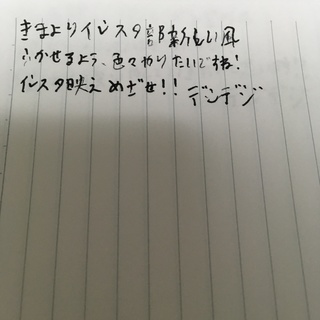 きまよりインスタ部新しい風
ふかせるよう、色々やりたいですね！
インスタ映えめざせ！！ デンデジ